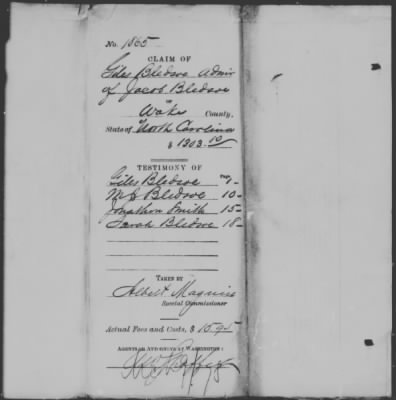 No. 1865
CLAIM OF
Giles Bledsoe Admr
of Jacob Bledsoe
in
Wake County,
State of North Carolina
$ 1303.50
TESTIMONY OF
Giles Bledsoe PAGE 1-
Bledsoe 10-
Jonathan Smith 15-
Sarah Bledsoe 18-
TAKEN BY
Albert Magnin
Special Commissioner
Actual Fees and Costs, $ 15.95
AGENTS OR ATTORNEYS AT WASHINGTON: